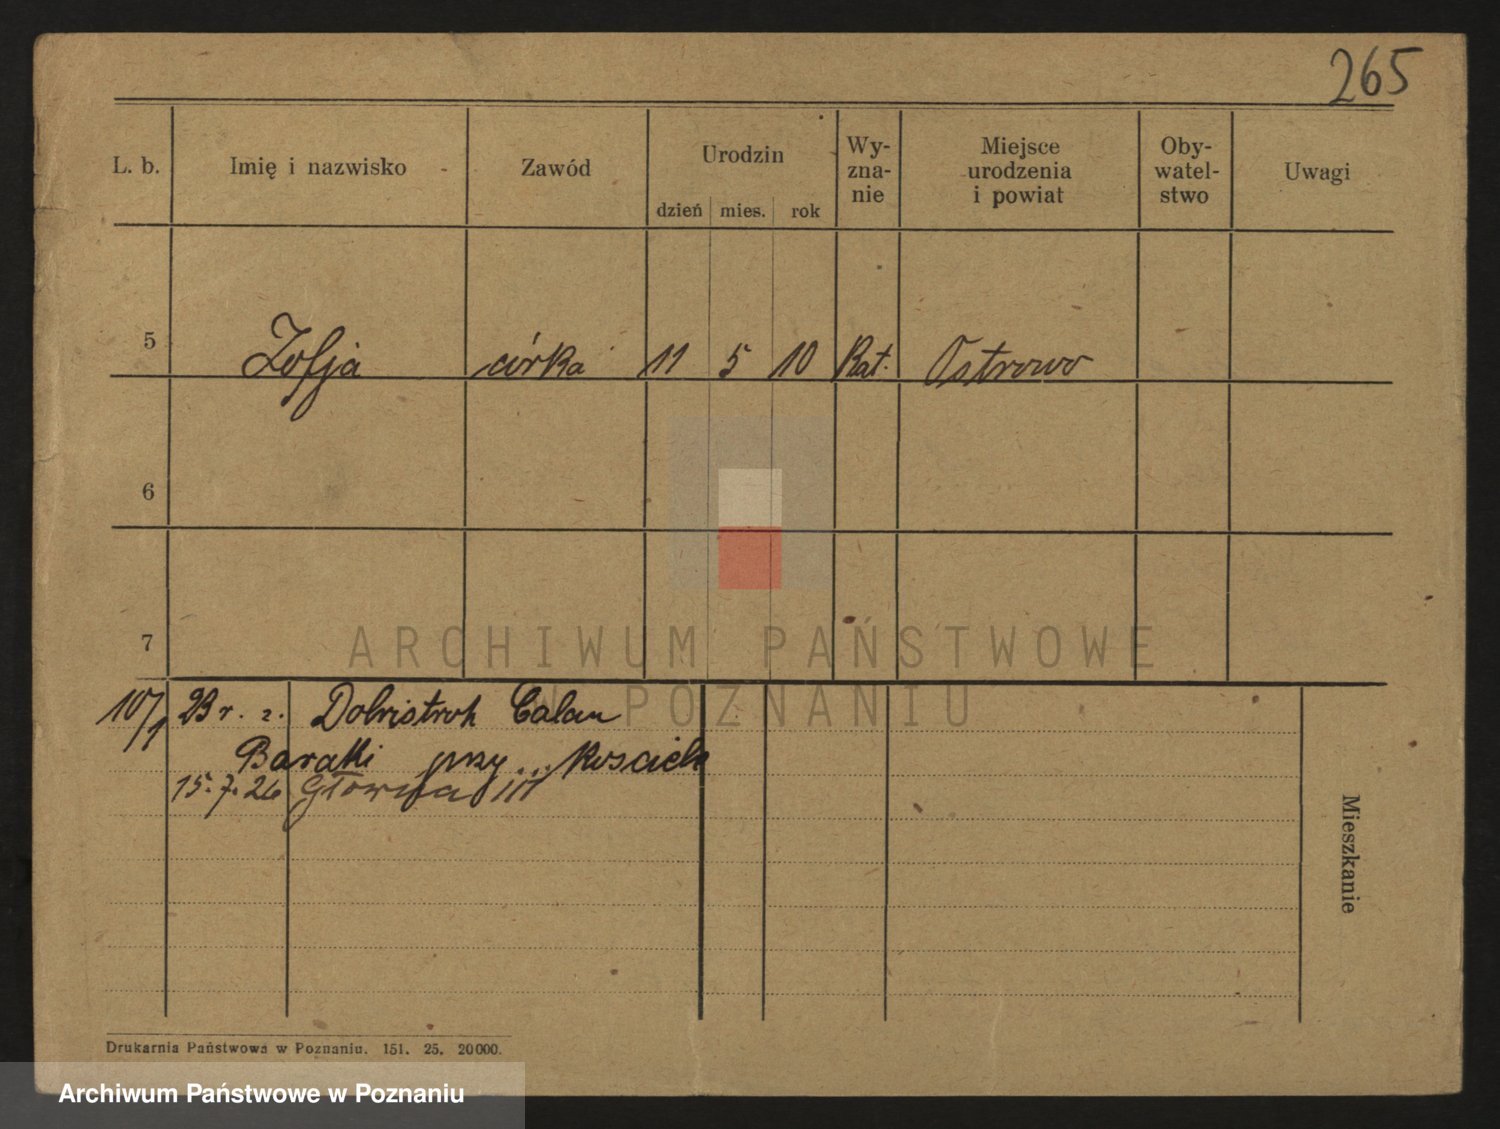 265
L. b. Imię i nazwisko Zawód Urodzin dzień mies. rok Wy-zna-nie Miejsce urodzenia i powiat Oby-watel-stwo Uwagi
5 Zofja córka 11 5 10 Kat. Ostrowo
6
7
ARCHIWUM PAŃSTWOWE
W POZNANIU
10/1 23 r. z. Dobristroh Calau
Baraki przy... Kosciele
15.7.26 Główna
Mieszkanie
Drukarnia Państwowa w Poznaniu. 151. 25. 20000.
Archiwum Państwowe w Poznaniu